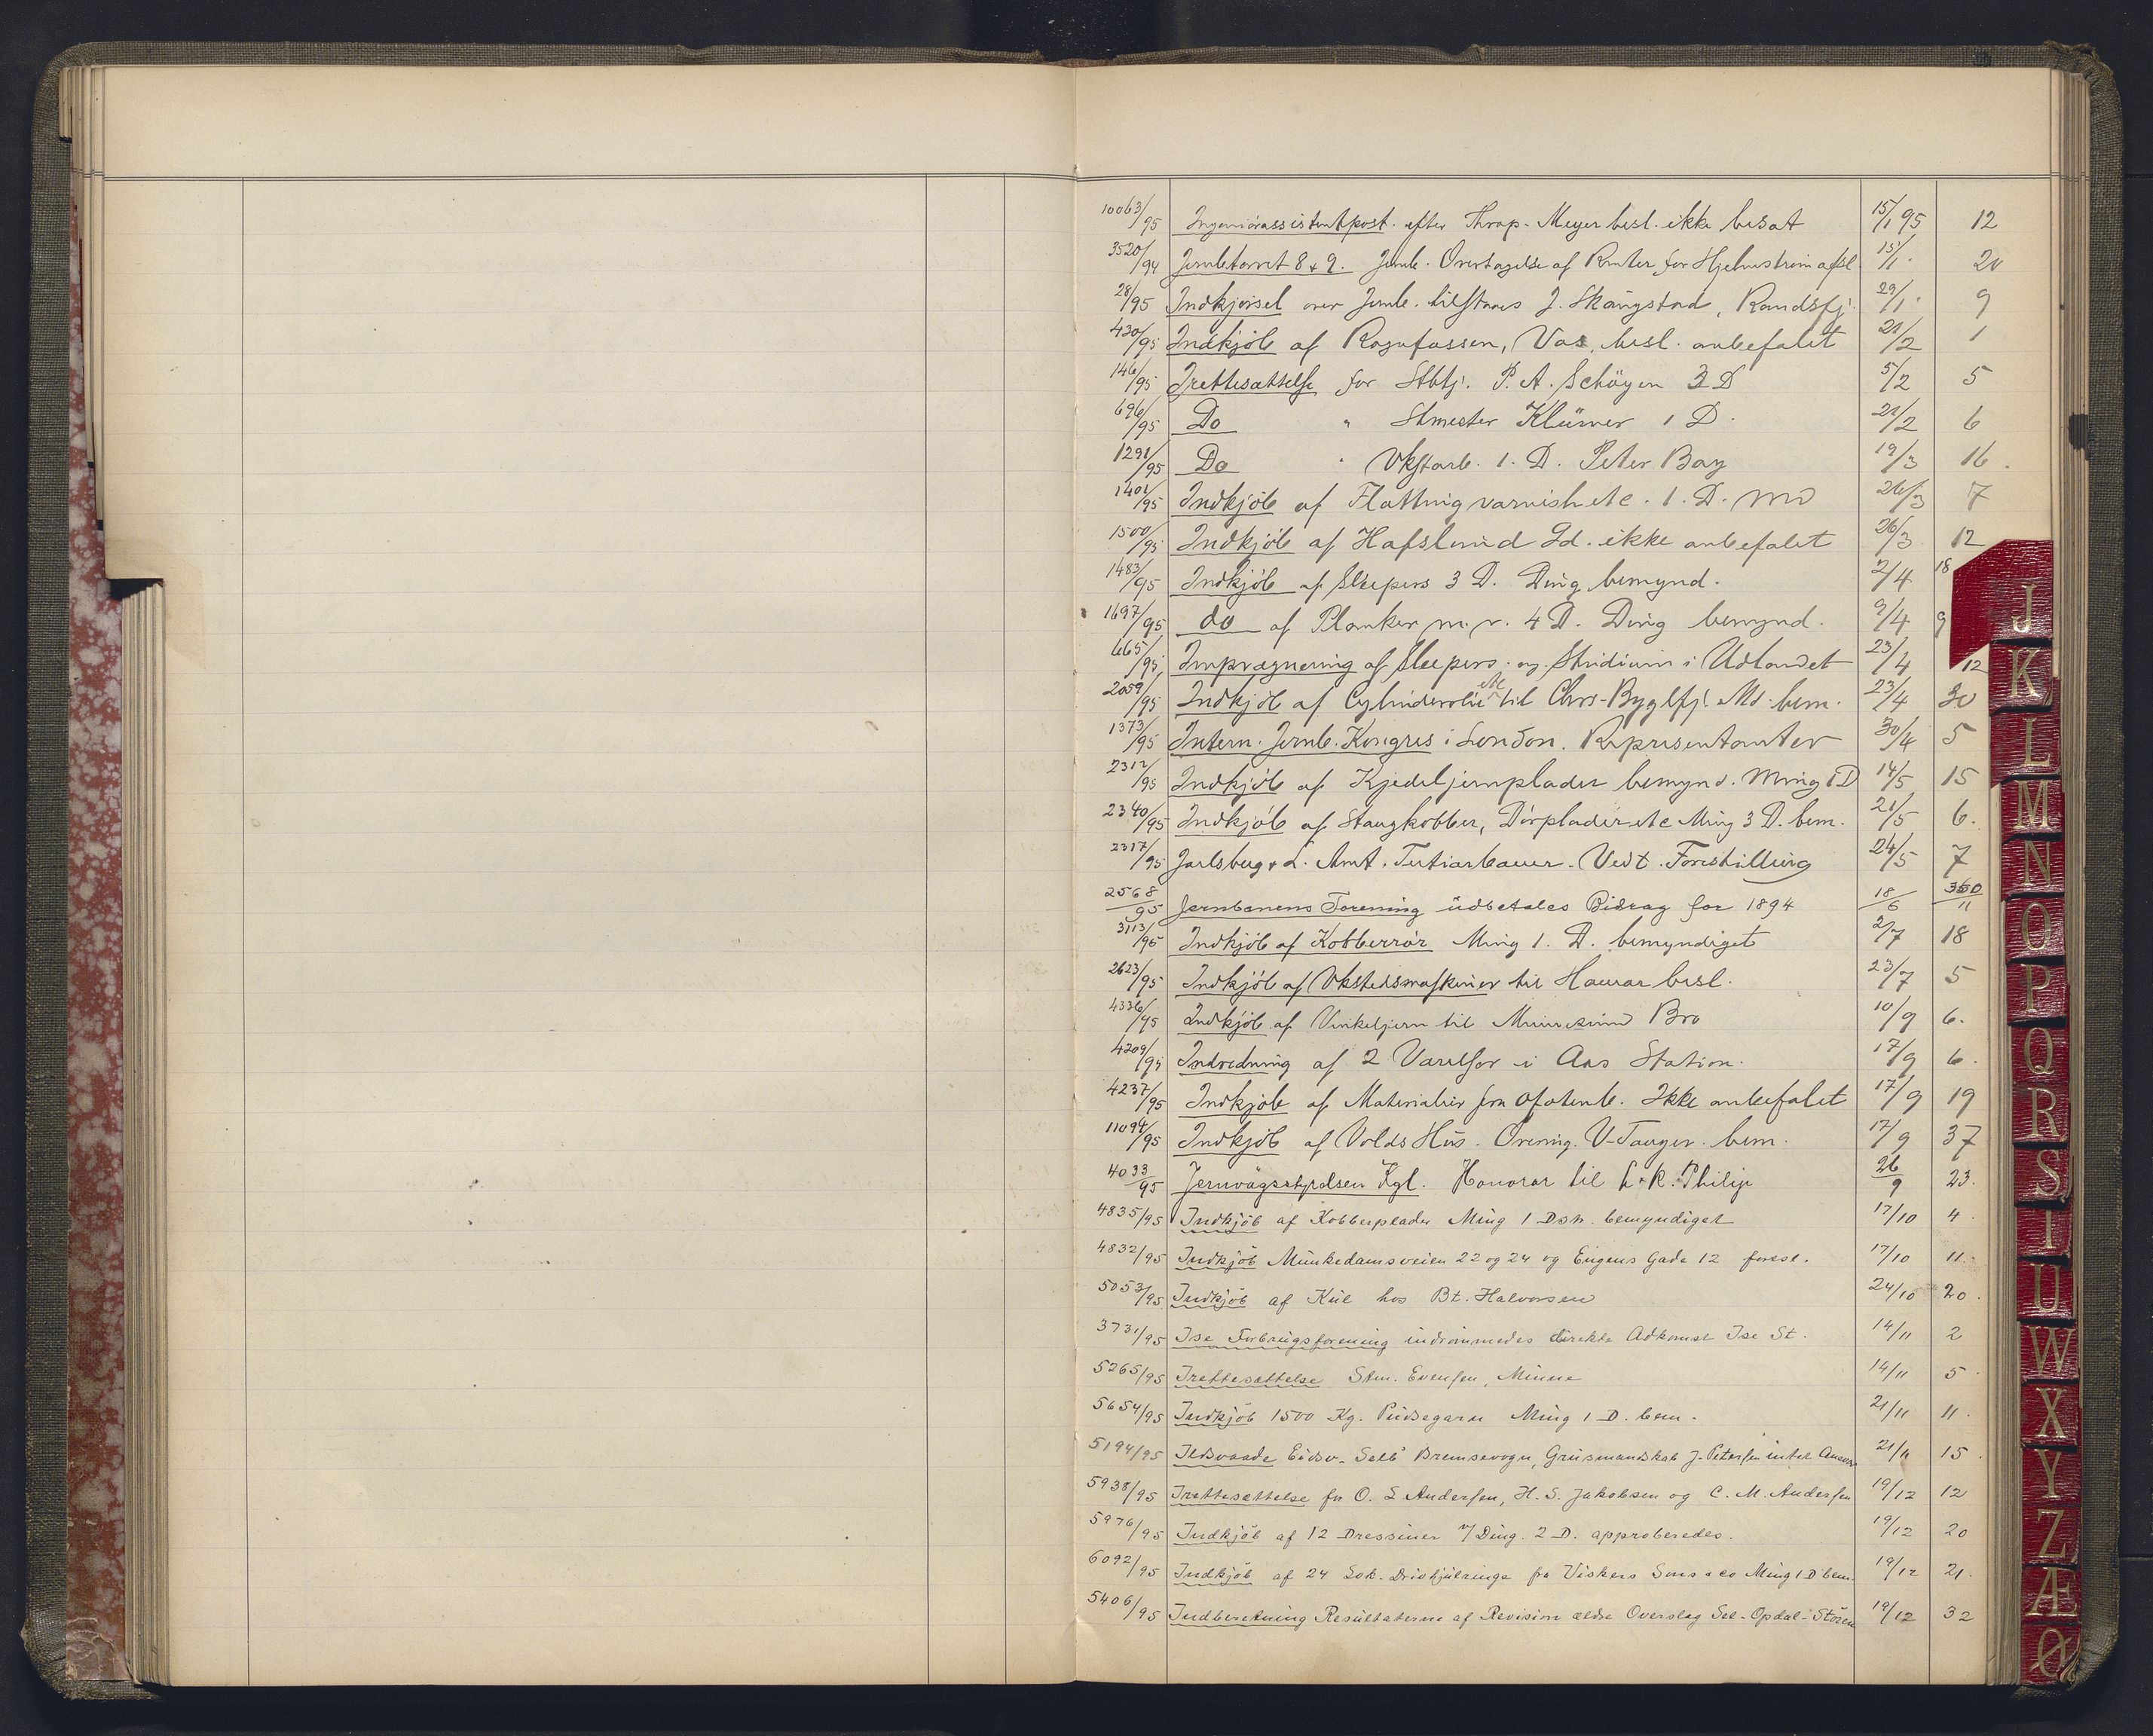 10063/95 Ingeniörassistentpost efter Throp-Meyer besl. ikke besat 15/1 95 12
3520/94 Jernbtorvet 8 & 9. Jernb. Overtagelse af Renter for Hjelmström afsl 15/1 20
28/95 Indkjørsel over Jernb. tilstaaes J. Skangstad, Randsfj. 29/1 9
430/95 Indkjöb af Vos, besl. anbefalet 21/2 1
146/95 Irettesættelse for Stbtj. P. A. Schöyen 3 D 5/2 5
696/95 Do " Stmester Klüwer 1 D. 21/2 6
1291/95 Do " Vkstarb. 1. D. Peter Bay 19/3 16.
1401/95 Indkjöb af Flattingvarnish etc. 1. D. 26/3 7
1500/95 Indkjöb af Hafslund Gd. ikke anbefalet 26/3 12
1483/95 Indkjöb af Sleepers 3 D. Ding bemynd. 2/4 18
1697/95 do af Planker m. v. 4 D. Ding bemynd. 9/4 9
665/95 Imprægnering af Sleepers og Studium i Udlandet 23/4 12
2059/95 Indkjöb af Cylinderolie etc til Chrs-Byglfj. Md. bem. 23/4 30
1373/95 Intern. Jernb. Kongres i London. Repræsentanter 30/4 5
2312/95 Indkjöb af Kjedeljernplader bemynd. Ming 1 D 14/5 15
2340/95 Indkjöb af Stangkobber, Dörplader etc Ming 3 D. bem. 21/5 6.
2317/95 Jarlsberg & L. Amt. Tertiærbaner. Vedt. Forestilling 24/5 7
2568/95 Jernbanens Forening üdbetales Bidrag for 1894 18/6 350/11
3113/95 Indkjöb af Kobberrör Ming 1. D. bemyndiget 2/7 18
2623/95 Indkjöb af Vkstedsmaskiner til Hamar besl. 23/7 5
4336/95 Indkjöb af Vinkeljern til Minnesund Bro 10/9 6.
4209/95 Indredning af 2 Varelser i Aas Station. 17/9 6.
4237/95 Indkjöb af Materialier fra Ofotenb. Ikke anbefalet 17/9 19
11094/95 Indkjöb af Volds Hus. Orening. V-Tanger. bem. 17/9 37
4033/95 Jernvägsstyrelsen Kgl. Honorar til L. R. Philip 26/9 23.
4835/95 Indkjöb af Kobberplader Ming 1 Dstr. bemyndiget 17/10 4.
4832/95 Indkjöb Münkedamsveien 22 og 24 og Eugens Gade 12 foresl. 17/10 11.
5053/95 Indkjöb af Kül hos Bt. Halvorsen 24/10 20.
3731/95 Ise Forbrügsforening indrömmedes direkte Adkomst Ise St. 14/11 2
5265/95 Irettesættelse Stm. Evensen, Minne 14/11 5
5654/95 Indkjöb 1500 Kg. Püdsegarn Ming 1 D. bem. 21/11 11.
5194/95 Ildsvaade Eidsv-Selb Bremsevogn, Grüsmandskab J. Petersen intet Ansvar 21/11 15
5938/95 Irettesættelse for O. L Andersen, H. S. Jakobsen og C. M. Andersen 19/12 12
5976/95 Indkjöb af 12 Dressiner v/Ding. 2 D. approberedes. 19/12 20
6092/95 Indkjöb af 24 Lok. Drivhjülringe fra Vickers Sons & Co Ming 1 D bem. 19/12 21.
5406/95 Indberetning Resültaterne af Revision ældre Overslag Sel-Opdal-Stören 19/12 32
J
K
L
M
N
O
P
Q
R
S
T
U
W
X
Y
Z
Æ
Ø